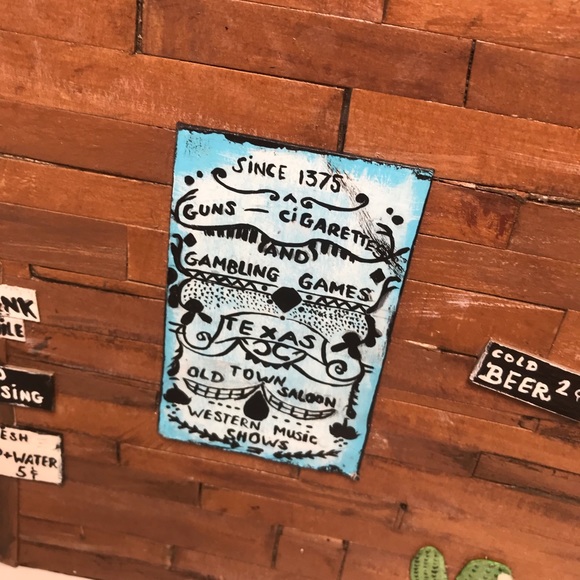 SINCE 1375
GUNS — CIGARETTE
AND
GAMBLING GAMES
TEXAS
OLD TOWN SALOON
WESTERN MUSIC
SHOWS
COLD
BEER 2¢
NK
ILE
SING
ESH
+WATER
5¢